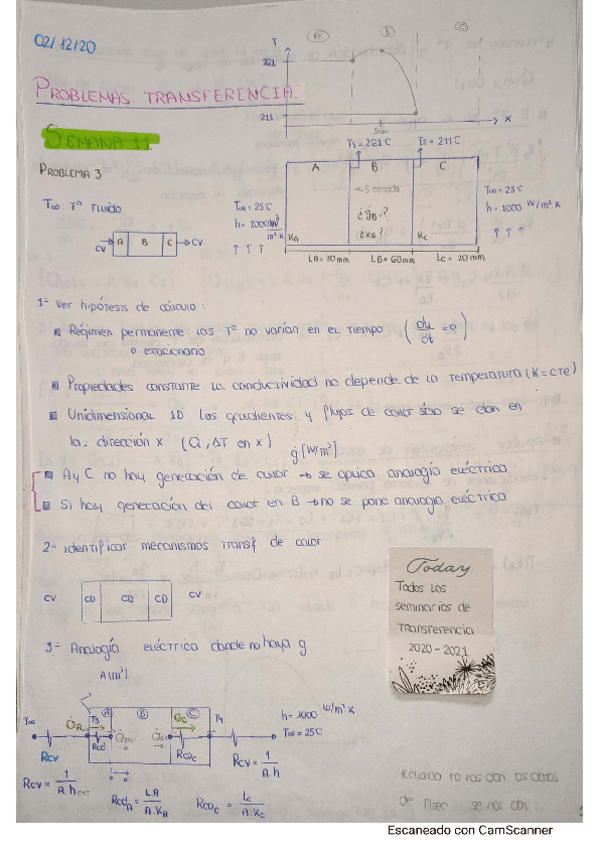 02/12/20
PROBLEMAS TRANSFERENCIA:
SEMANA 11
PROBLEMA 3
T∞: Tª Fluido
CV A B C CV
T
A B C
261
211
x
T1 = 261ºC T2 = 211ºC
A B C
T∞ = 25ºC
h = 1000 W/m² K
↑ ↑ ↑
KA
¿ġB = ?
¿KB?
KC
T∞ = 25ºC
h = 1000 W/m² K
↑ ↑ ↑
LA = 30mm LB = 60mm LC = 20mm
1- Ver hipótesis de cálculo:
Régimen permanente: las Tª no varían en el tiempo (du/dt = 0)
o estacionario
Propiedades constante la conductividad no depende de la temperatura (K = cte)
Unidimensional 1D los gradientes y flujos de calor sólo se dan en
la: dirección x (Q, ΔT en x)
ġ [W/m³]
A y C no hay generación de calor → se aplica analogía eléctrica
Si hay generación del calor en B → no se pone analogía eléctrica
2- identificar mecanismos transf de calor
CV CD CD CD CV
3- Analogía eléctrica donde no haya g
A [m²]
Today
Todos los
seminarios de
Transferencia
2020-2021
T∞ A B C T4
h = 1000 W/m² K
T∞ = 25ºC
RCV
RCV = 1/A.h ext
RCDA = LA/A.KA
RCDC = LC/A.KC
RCV = 1/A.h
Escaneado con CamScanner